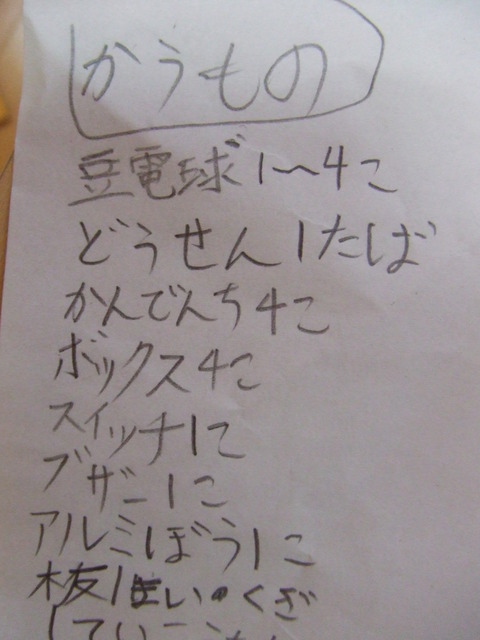 かうもの
豆電球1〜4こ
どうせん1たば
かんでんち4こ
ボックス4こ
スイッチ1こ
ブザー1こ
アルミぼう1こ
板1まい・くぎ